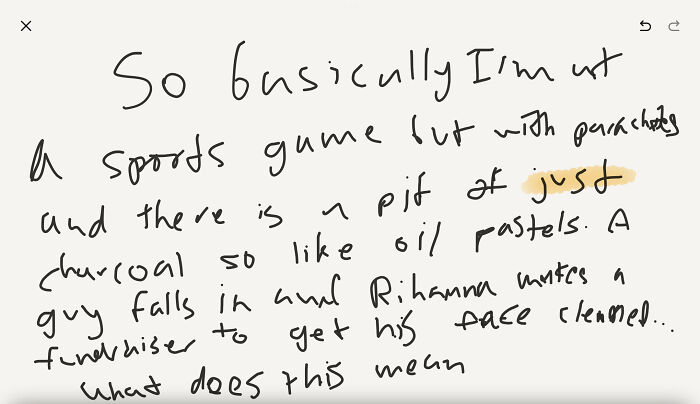 So basically I'm at
a sports game but with parachutes
and there is a pit of just
charcoal so like oil pastels. A
guy falls in and Rihanna makes a
fundraiser to get his face cleaned...
what does this mean